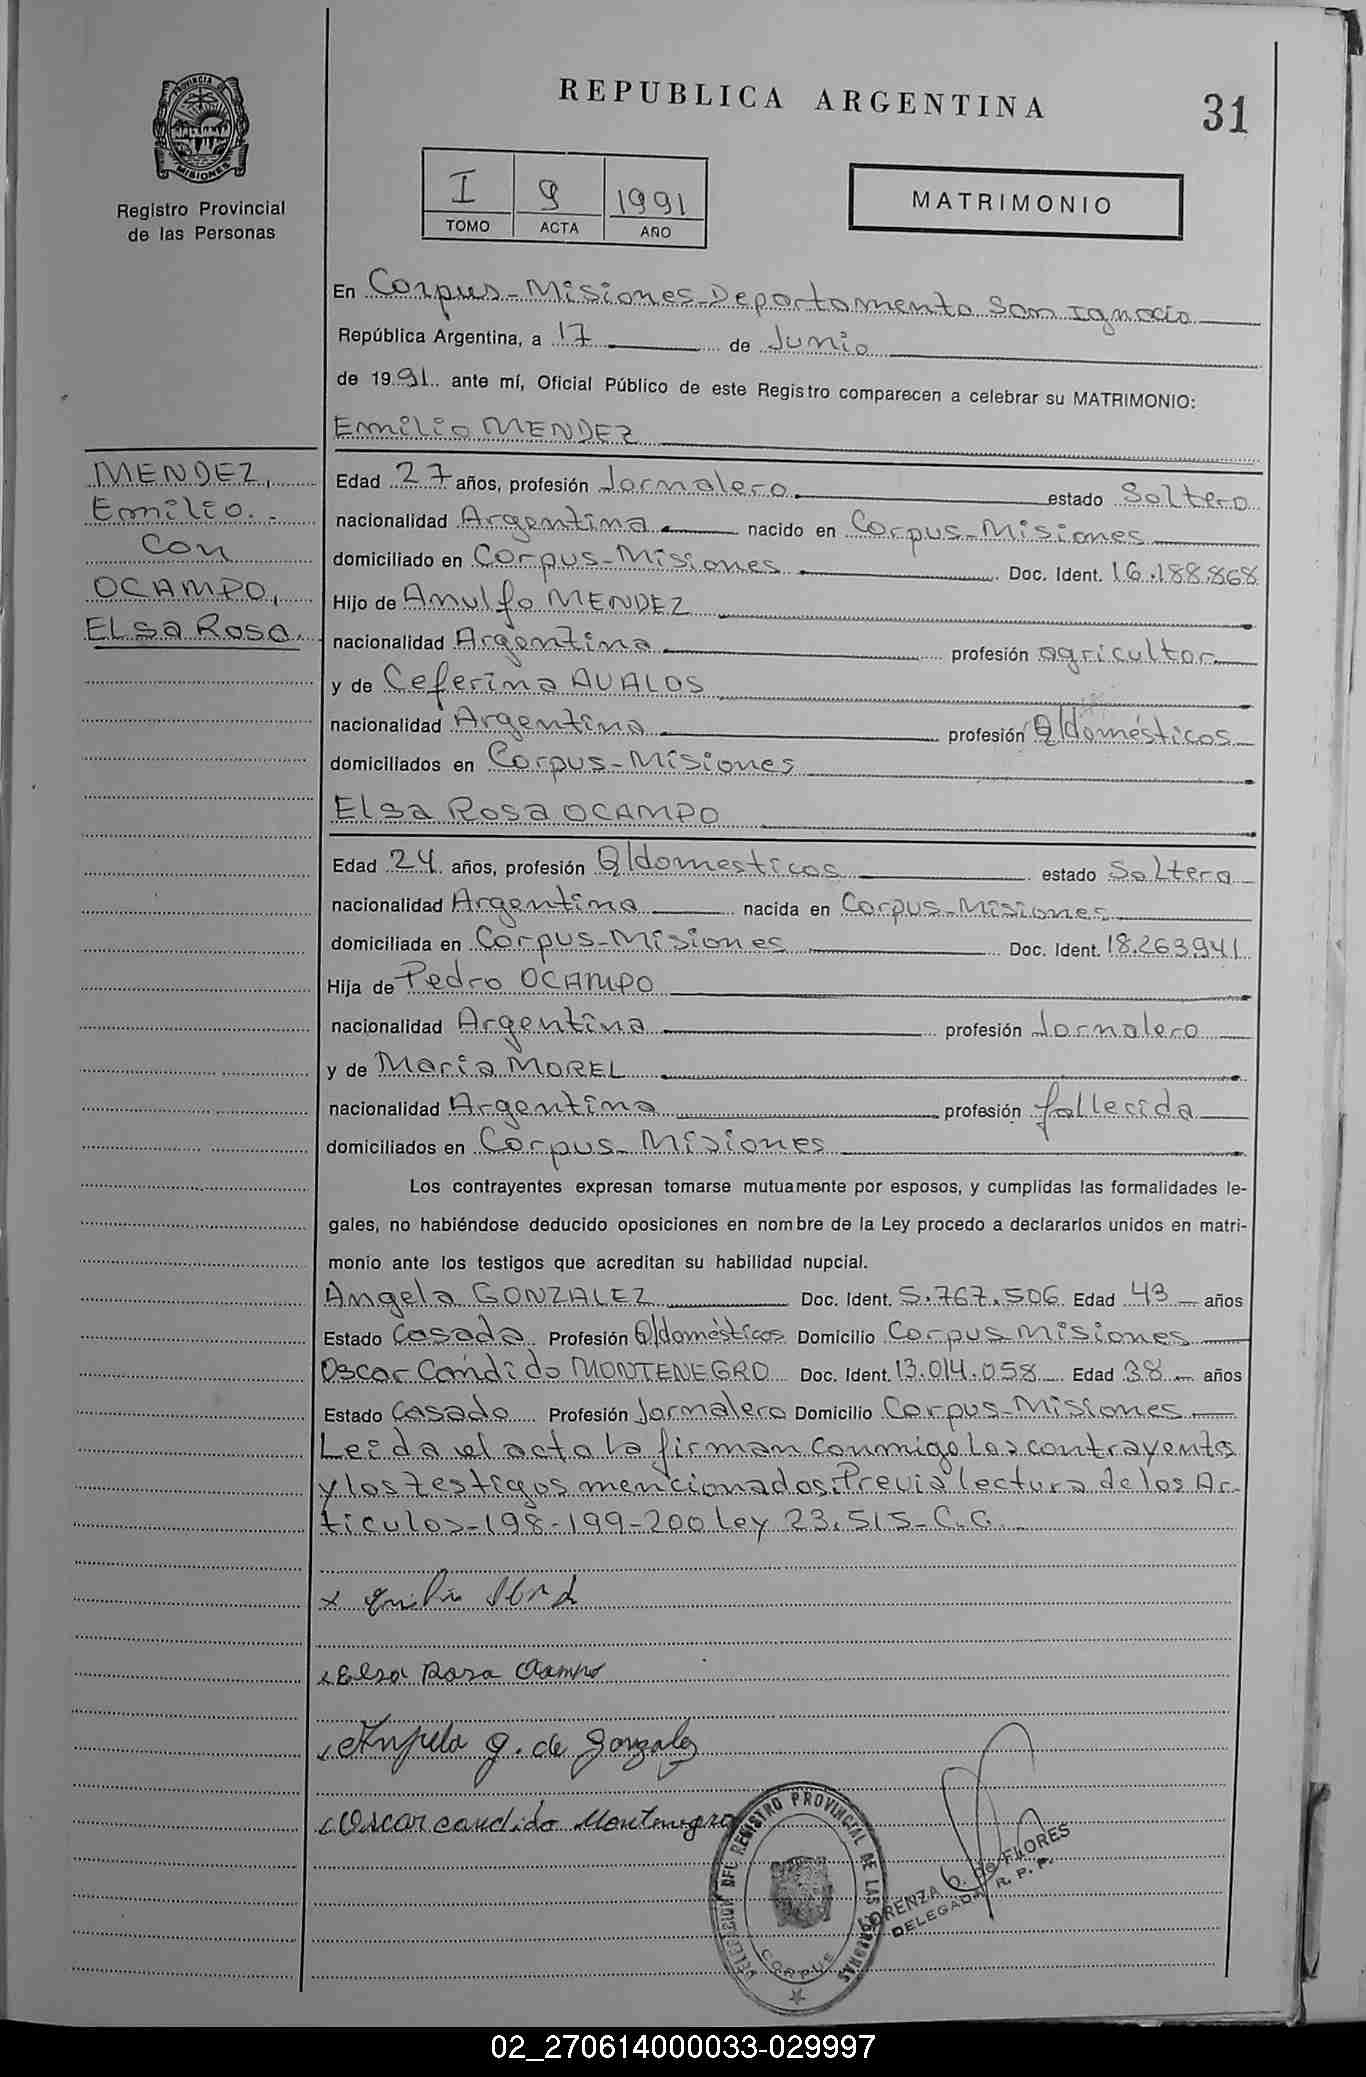 REPUBLICA ARGENTINA
31
PROVINCIA DE
MISIONES
Registro Provincial
de las Personas
I 9 1991
TOMO ACTA AÑO
MATRIMONIO
En Corpus-Misiones-Departamento San Ignacio
República Argentina, a 17 de Junio
de 1991 ante mí, Oficial Público de este Registro comparecen a celebrar su MATRIMONIO:
Emilio MENDEZ
MENDEZ,
Emilio.-
con
OCAMPO,
Elsa Rosa.
Edad 27 años, profesión Jornalero estado Soltero
nacionalidad Argentina nacido en Corpus-Misiones
domiciliado en Corpus-Misiones Doc. Ident. 16.188.868
Hijo de Arnulfo MENDEZ
nacionalidad Argentina profesión agricultor
y de Ceferina AVALOS
nacionalidad Argentina profesión Q/domésticos
domiciliados en Corpus-Misiones
Elsa Rosa OCAMPO
Edad 24 años, profesión Q/domesticos estado Soltera
nacionalidad Argentina nacida en Corpus-Misiones
domiciliada en Corpus-Misiones Doc. Ident. 18.263.941
Hija de Pedro OCAMPO
nacionalidad Argentina profesión Jornalero
y de Maria MOREL
nacionalidad Argentina profesión fallecida
domiciliados en Corpus-Misiones
Los contrayentes expresan tomarse mutuamente por esposos, y cumplidas las formalidades le-
gales, no habiéndose deducido oposiciones en nombre de la Ley procedo a declararlos unidos en matri-
monio ante los testigos que acreditan su habilidad nupcial.
Angela GONZALEZ Doc. Ident. 5.767.506 Edad 43 años
Estado Casada Profesión Q/domésticos Domicilio Corpus Misiones
Oscar Cándido MONTENEGRO Doc. Ident. 13.014.058 Edad 38 años
Estado Casado Profesión Jornalero Domicilio Corpus-Misiones
Leida el acta la firman conmigo los contrayentes
y los testigos mencionados. Previa lectura de los Ar-
ticulos-198-199-200 Ley 23.515-C.C.
x Emilio
x Elsa Rosa Ocampo
x Angela g. de Gonzalez
x Oscar candido Montenegro
DELEGACION DEL REGISTRO PROVINCIAL DE LAS PERSONAS
CORPUS
LORENZA O. de FLORES
DELEGADA R. P. P.
02_270614000033-029997